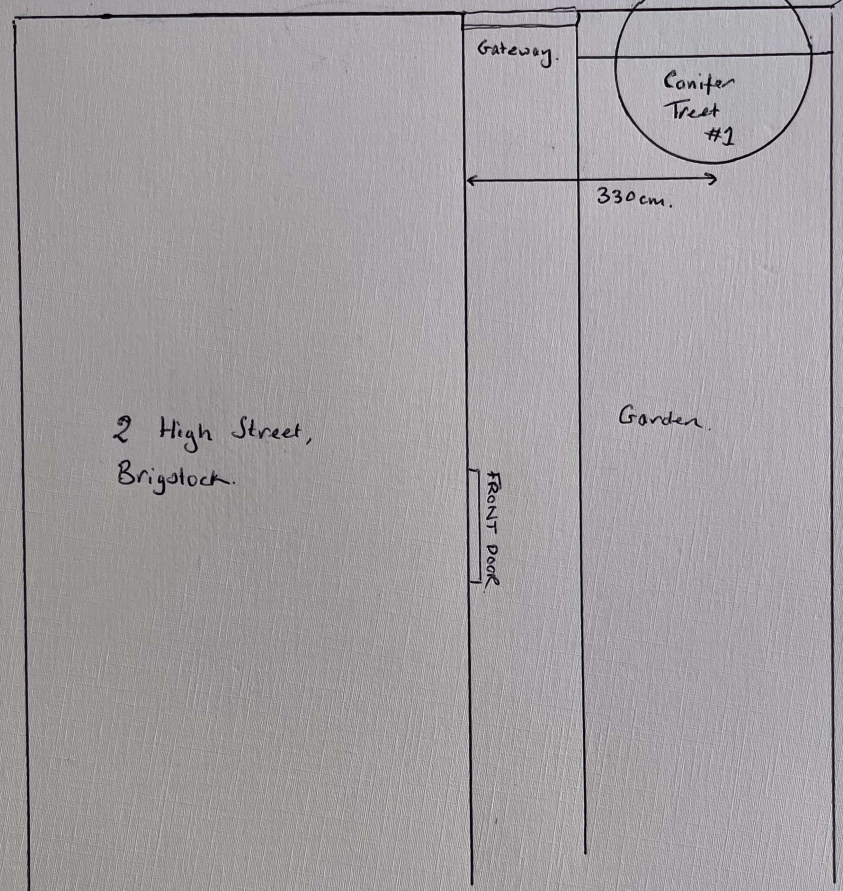 Gateway.
Conifer
Treet
#1
330cm.
2 High Street,
Brigstock.
Garden.
FRONT DOOR.